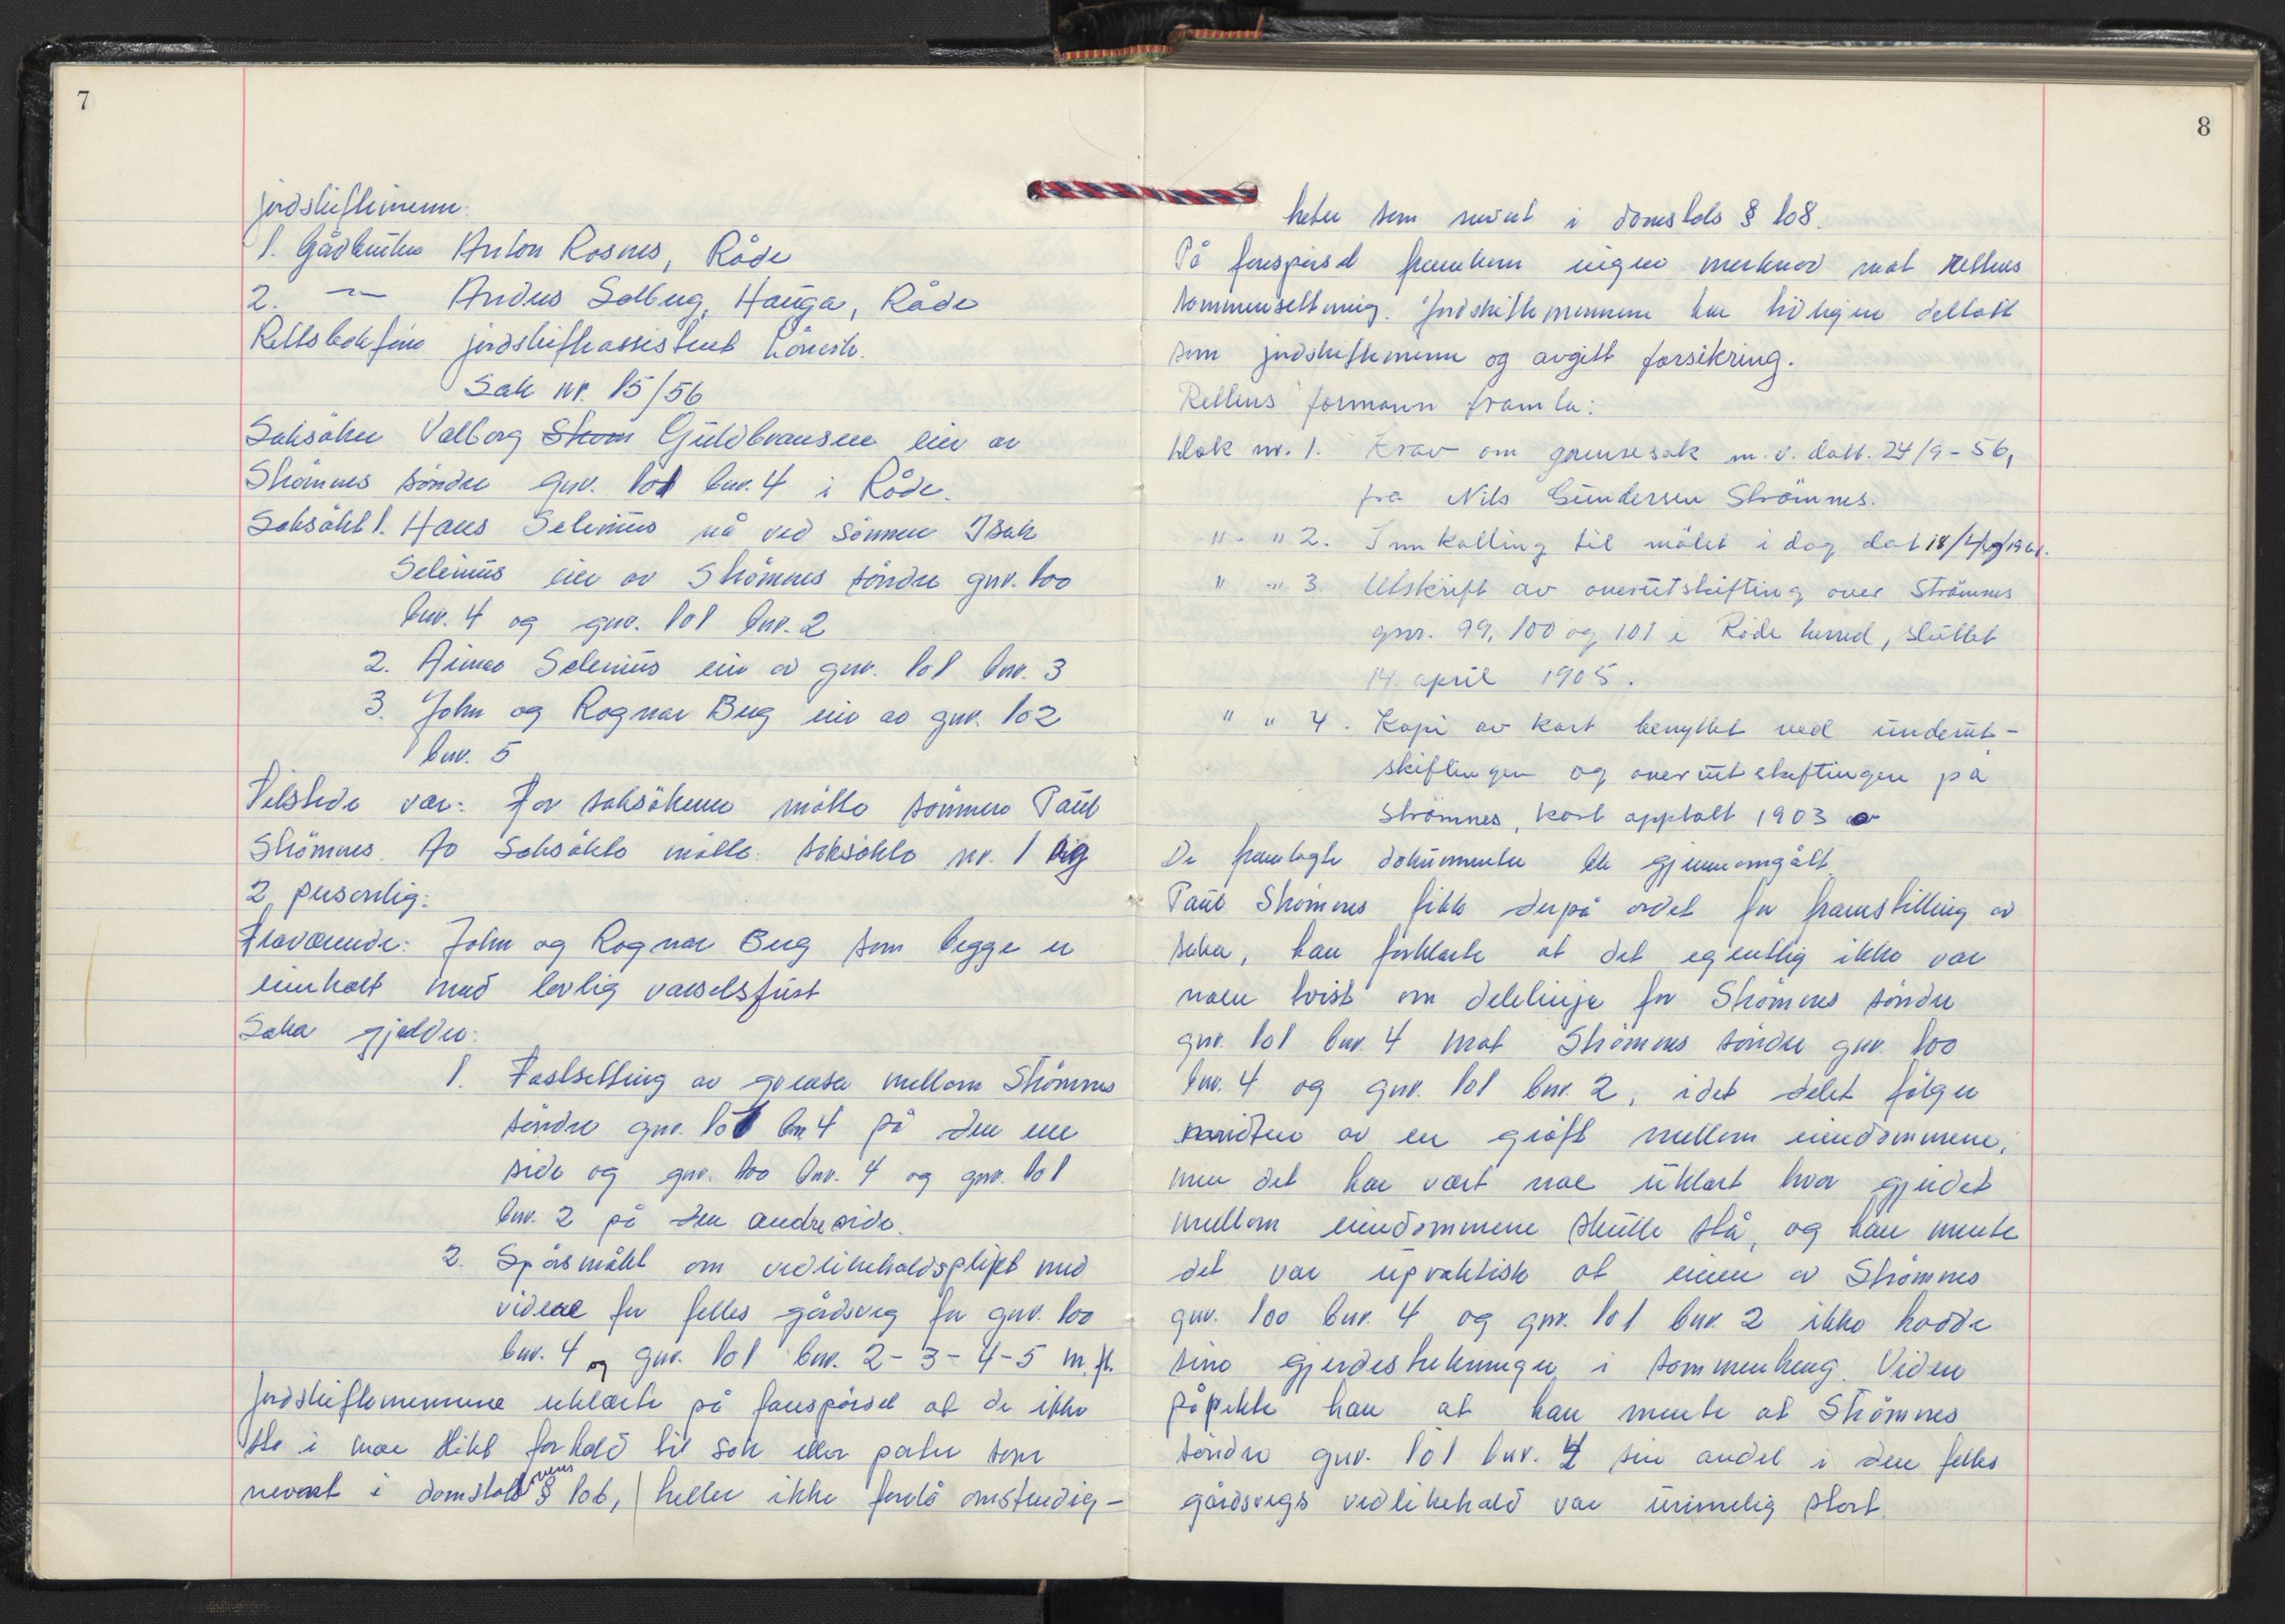 7
jordskiftemenn:
1. Gårdbruker Anton Rosnes, Råde
2. —"— Anders Solberg, Hauga, Råde
Rettsbokfører jordskifteassistent
Sak nr. 15/56
Saksøker Valborg Güldbransen eier av
Strömnes söndre gnr. 101 bnr. 4 i Råde.
Saksøkt 1. Hans Selenius nå ved sönnen Isak
Selenius eier av Strömnes söndre gnr. 100
bnr. 4 og gnr. 101 bnr. 2
2. Aimar Selenius eier av gnr. 101 bnr. 3
3. John og Ragnar Berg eier av gnr. 102
bnr. 5
Tilstede var: For saksökeren mötte sönnen Paul
Strömnes. Av saksökte mötte: saksökte nr. 1 og
2 personlig.
Fraværende: John og Ragnar Berg som begge er
innkalt med lovlig varselsfrist
Saka gjelder:
1. Fastsetting av grensa mellom Strömnes
söndre gnr. 101 bnr 4 på den ene
side og gnr. 100 bnr. 4 og gnr. 101
bnr. 2 på den andre side.
2. Spörsmålet om vedlikeholdsplikt med
videre for felles gårdsveg for gnr. 100
bnr. 4 og gnr. 101 bnr. 2-3-4-5 m.fl.
Jordskiftemennene erklærte på forespörsel at de ikke
sto i noe slikt forhold til sak eller parter som
nevnt i domstolslovens § 106, heller ikke forelå omstendig-
8
heter som nevnt i domstols § 108.
På forespörsel framkom ingen merknad mot rettens
sammensetning. Jordskiftemennene har tidligere deltatt
som jordskiftemenn og avgitt forsikring.
Rettens formann framla:
dok nr. 1. Krav om grensesak m.v. datt. 24/9-56,
fra Nils Gundersen Strömnes.
" - " 2. Innkalling til mötet i dag dat 18/4/1961.
" - " 3. Utskrift av overutskifting over Strömnes
gnr. 99, 100 og 101 i Råde herred, sluttet
14. april 1905.
" " 4. Kopi av kart benyttet ved underut-
skiftingen og overutskiftingen på
Strömnes, kart opptatt 1903
De framlagte dokumenter ble gjennomgått.
Paul Strömnes fikk derpå ordet for framstilling av
saka, han forklarte at det egentlig ikke var
noen tvist om delelinje for Strömnes söndre
gnr. 101 bnr. 4 mot Strömnes söndre gnr. 100
bnr. 4 og gnr. 101 bnr. 2, idet delet fölger
midten av en gröft mellom eiendommene,
men det har vært noe uklart hvor gjerdet
mellom eiendommene skulle stå, og han mente
det var upraktisk at eieren av Strömnes
gnr. 100 bnr. 4 og gnr. 101 bnr. 2 ikke hadde
sine gjerdestrekninger i sammenheng. Videre
påpekte han at han mente at Strömnes
söndre gnr. 101 bnr. 4 sin andel i den felles
gårdsvegs vedlikehold var urimelig stort.